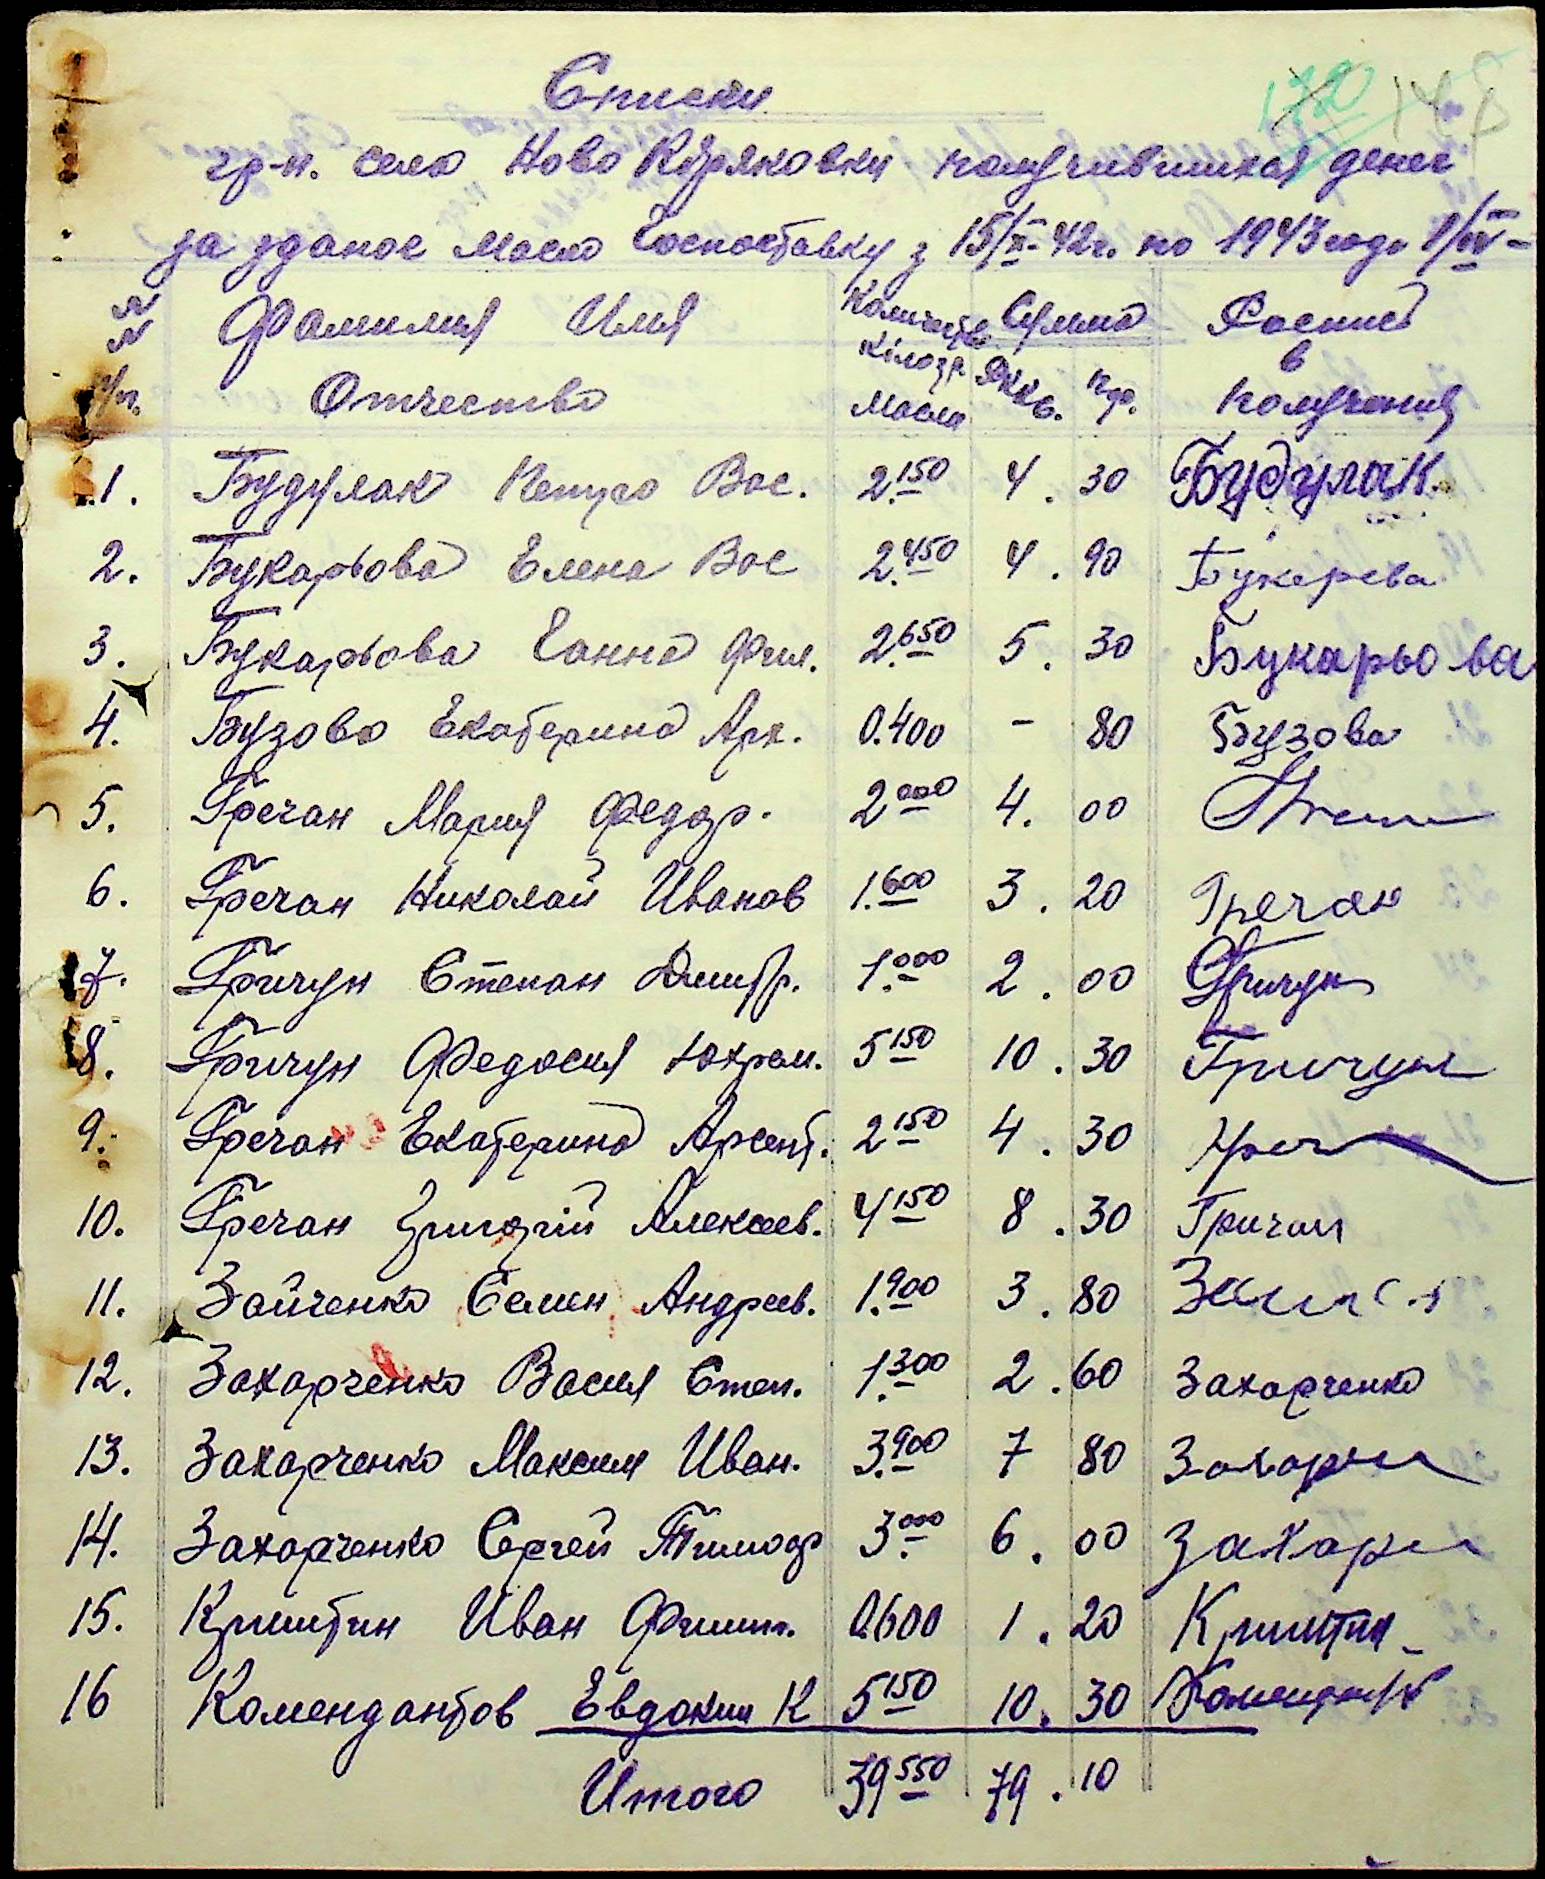 Списки
гр-н. села Ново Куряковки получившихся денег
за зданое масло Госпоставку з 15/XI- 42г. по 1943 года 1/IV-
№ № п/п. Фамилия Имя Отчество Количество кілогр масла Сумма Яккб. пф. Роспись в получении
1. Будулак Вас. 2.150 4. 30 Будулак
2. Букарьова Елена Вас 2.450 4. 90 Букарева
3. Букарьова Ганна Фил. 2.650 5. 30 Букарьова
4. Бузово Екатерина Арх. 0.400 - 80 Бузова
5. Гречан Мария Федор. 2000 4. 00
6. Гречан Николай Иванов 1.600 3. 20 Гречан
7. Гричун Степан Дмитр. 1.000 2. 00 Гричун
8. Гричун Федосия 5150 10. 30 Гричун
9. Гречан Екатерина Арсент. 2150 4. 30 Греч
10. Гречан Григорій Алексеев. 4150 8. 30 Гричан
11. Зайченко Семен Андреев. 1.900 3. 80
12. Захарченко Васил Степ. 1.300 2. 60 Захарченко
13. Захарченко Максим Иван. 3.900 7 80 Захарч
14. Захарченко Сергей Тимоф 3.000 6. 00 Захарч
15. Криштин Иван Филип. 0.600 1. 20 Криштин
16 Комендантов Евдоким К 5150 10. 30
Итого 39550 79. 10